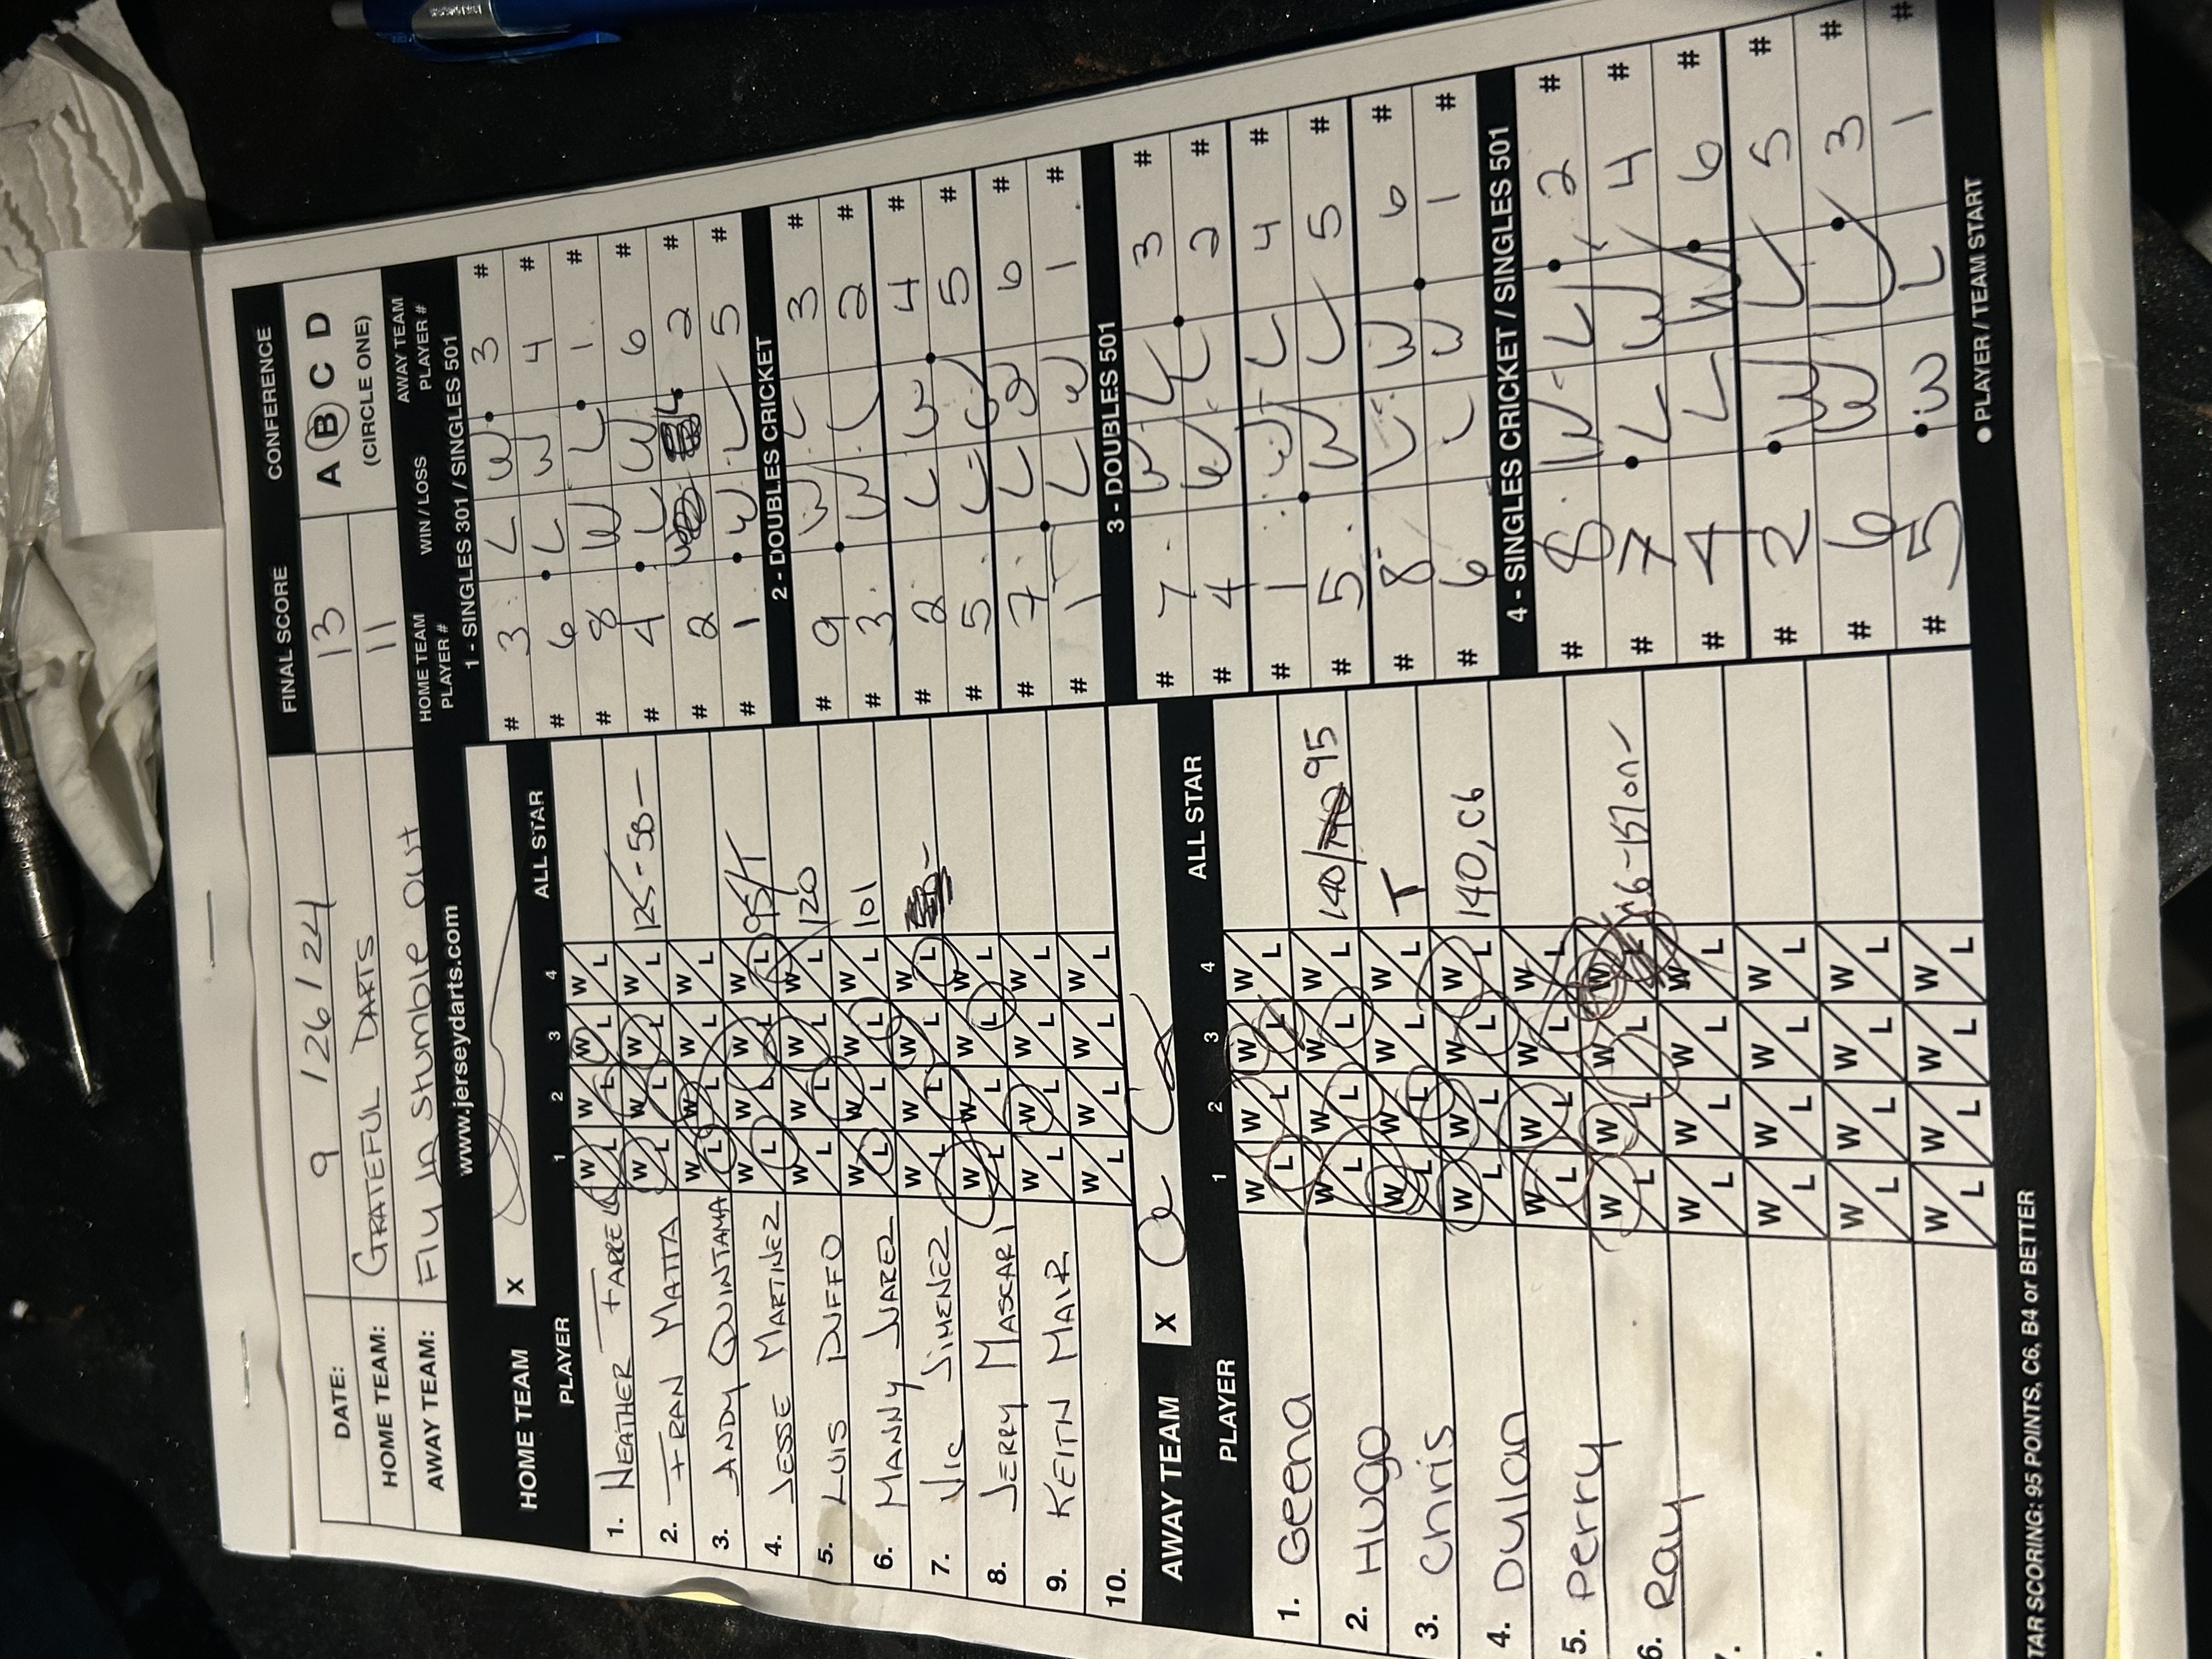 DATE: 9 / 26 / 24
FINAL SCORE
CONFERENCE
HOME TEAM: GRATEFUL DARTS 13
A B C D
AWAY TEAM: Fly In Stumble Out 11
(CIRCLE ONE)
www.jerseydarts.com
HOME TEAM X
PLAYER 1 2 3 4 ALL STAR
1. HEATHER FARRELL W L W L W L W L
2. FRAN MATTA W L W L W L W L
3. ANDY QUINTANA W L W L W L W L
4. JESSE MARTINEZ W L W L W L W L 95/T
5. LUIS DUFFO W L W L W L W L 120
6. MANNY JUAREZ W L W L W L W L 101
7. VIC JIMENEZ W L W L W L W L
8. JERRY MASCARI W L W L W L W L
9. KEITH MAIR W L W L W L W L
10. W L W L W L W L
AWAY TEAM X
PLAYER 1 2 3 4 ALL STAR
1. Geena W L W L W L W L
2. Hugo W L W L W L W L 140/ 95
3. Chris W L W L W L W L T
4. Dylan W L W L W L W L 140, C6
5. Perry W L W L W L W L
6. Ray W L W L W L W L
W L W L W L W L
W L W L W L W L
W L W L W L W L
W L W L W L W L
HOME TEAM PLAYER # WIN / LOSS AWAY TEAM PLAYER #
1 - SINGLES 301 / SINGLES 501
# 3 L W 3 #
# 6 L W 4 #
# 8 W L 1 #
# 4 L W 6 #
# 2 L 2 #
# 1 W L 5 #
2 - DOUBLES CRICKET
# 9 W L 3 #
# 3 W L 2 #
# 2 L W 4 #
# 5 L W 5 #
# 7 L W 6 #
# 1 L W 1 #
3 - DOUBLES 501
# 7 W L 3 #
# 4 W L 2 #
# 1 W L 4 #
# 5 W L 5 #
# 8 L W 6 #
# 6 L W 1 #
4 - SINGLES CRICKET / SINGLES 501
# 8 W L 2 #
# 7 L W 4 #
# 4 L W 6 #
# 2 W L 5 #
# 6 W L 3 #
# 5 W L 1 #
● PLAYER / TEAM START
TAR SCORING: 95 POINTS, C6, B4 or BETTER